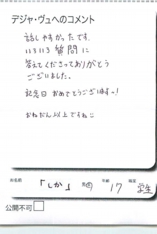 デジャ・ヴュへのコメント
話しやすかったです。
いろいろ質問に
答えてくださってありがとう
ございました。
記念日おめでとうございますっ!
おねだん以上ですね
「しか」
年齢 17 職業 学生
公開不可